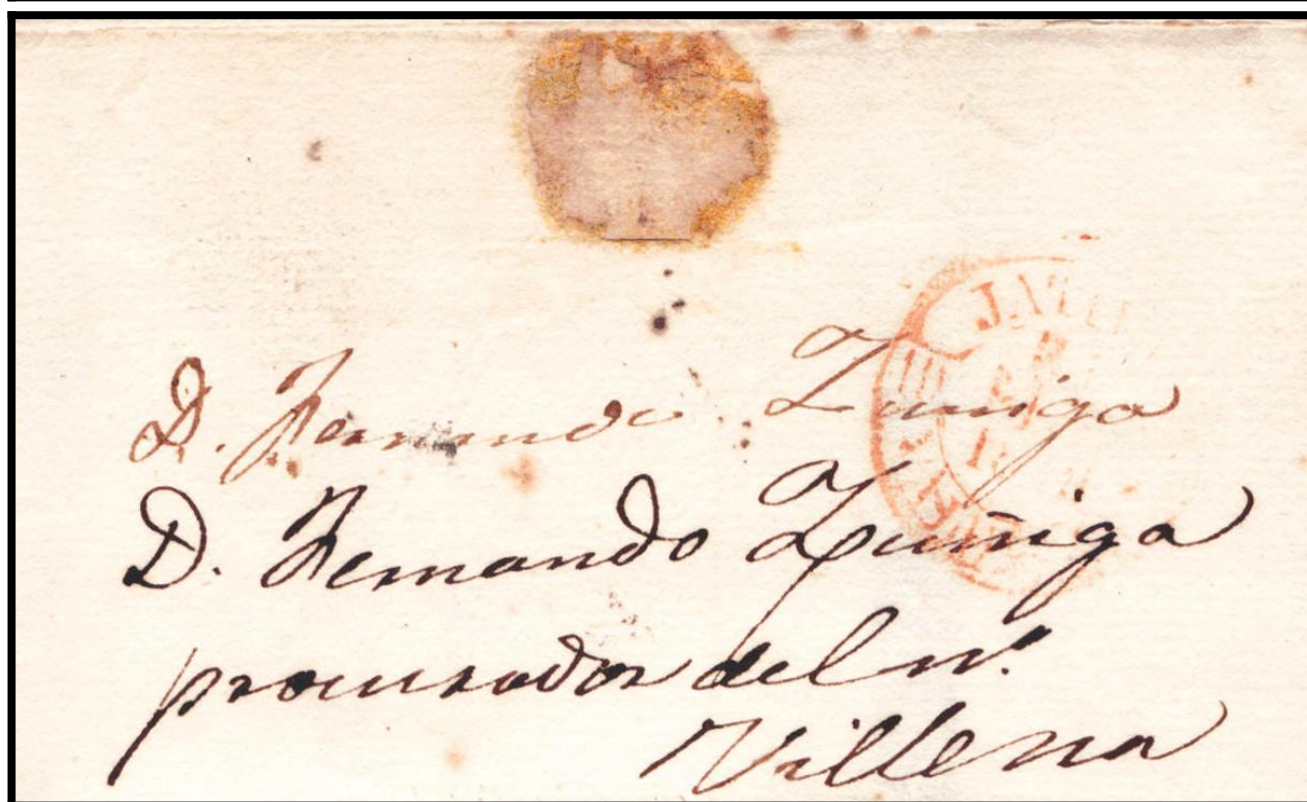 D. Fernando Zuniga
D. Fernando Zuñiga
procurador del nº.
Villena